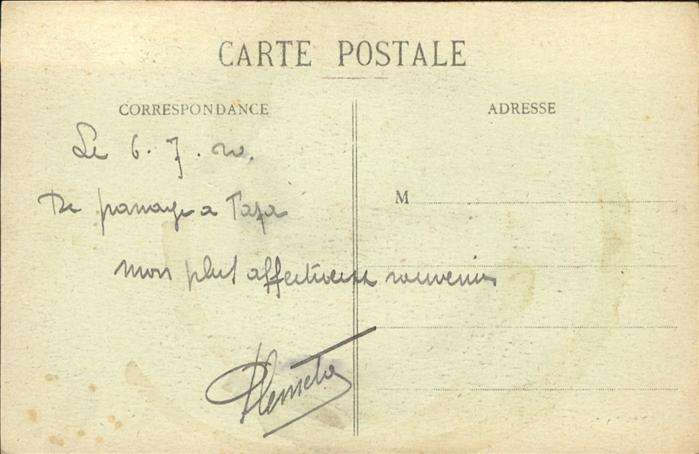 CARTE POSTALE
CORRESPONDANCE
ADRESSE
Le 6.7.20.
De passage a Taza
M
mon plus affectueux souvenir